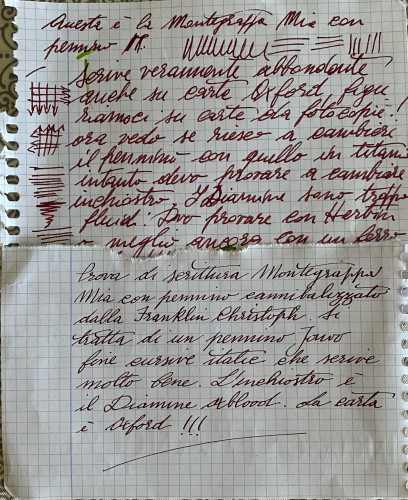 Questa è la Montegrappa Mia con
pennino M.
scrive veramente abbondante
anche su carta Oxford, figu
riamoci su carta da fotocopie!
ora vedo se riesco a cambiare
il pennino con quello in titanio
intanto devo provare a cambiare
inchiostro. I Diamine sono troppo
fluidi. Devo provare con Herbin
o meglio ancora con un ferro
Prova di scrittura Montegrappa
Mia con pennino cannibalizzato
dalla Franklin Christoph. Si
tratta di un pennino Jowo
fine cursive italic che scrive
molto bene. L'inchiostro è
il Diamine Oxblood. La carta
è Oxford !!!